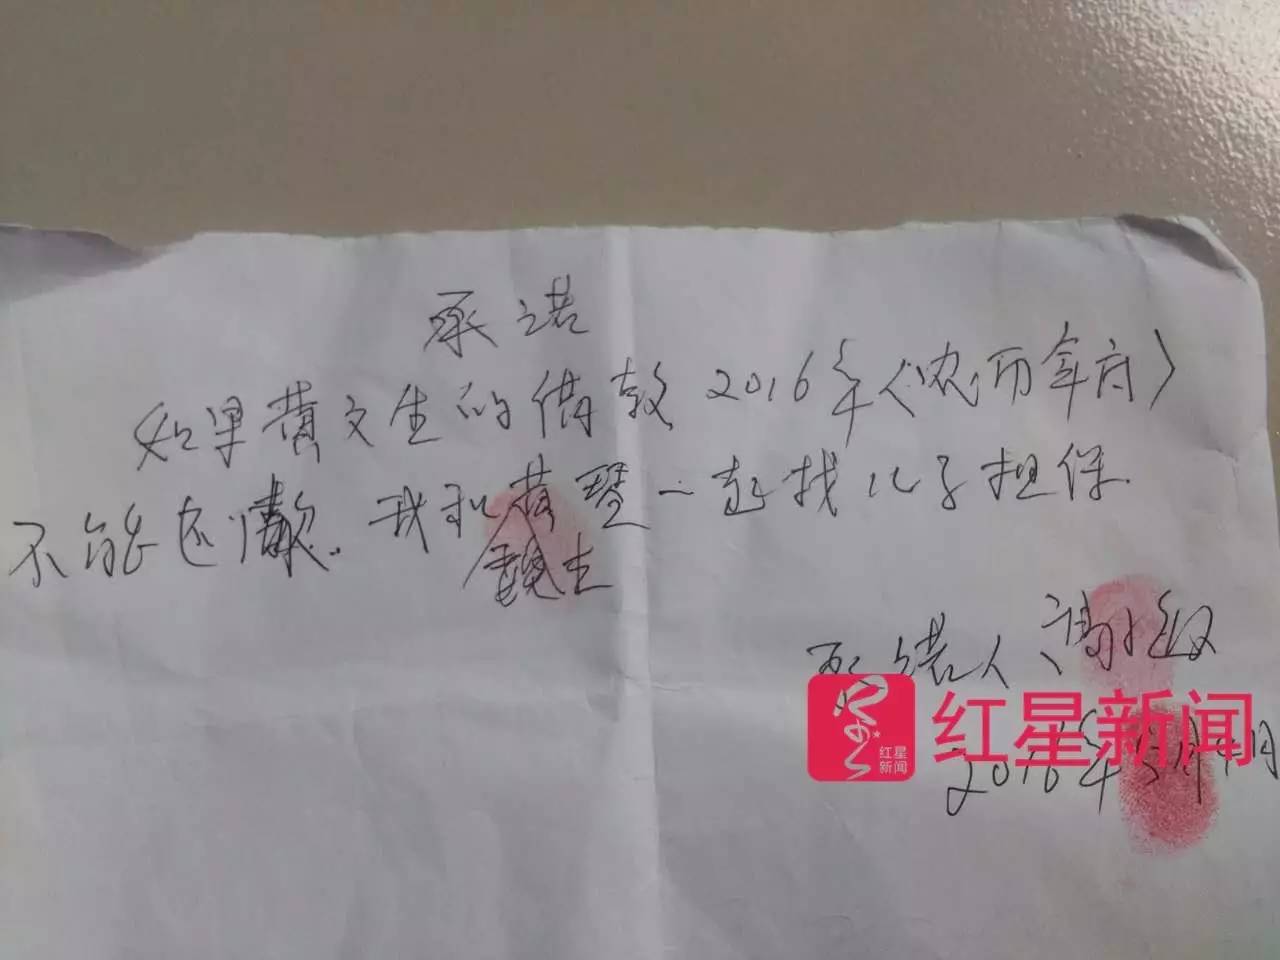 承诺
如果黄文生的借款2016年(农历年府)
不能还款.我和黄琴一起找儿子担保.
承诺人 谢
红星新闻
红星
新闻
2016年5月